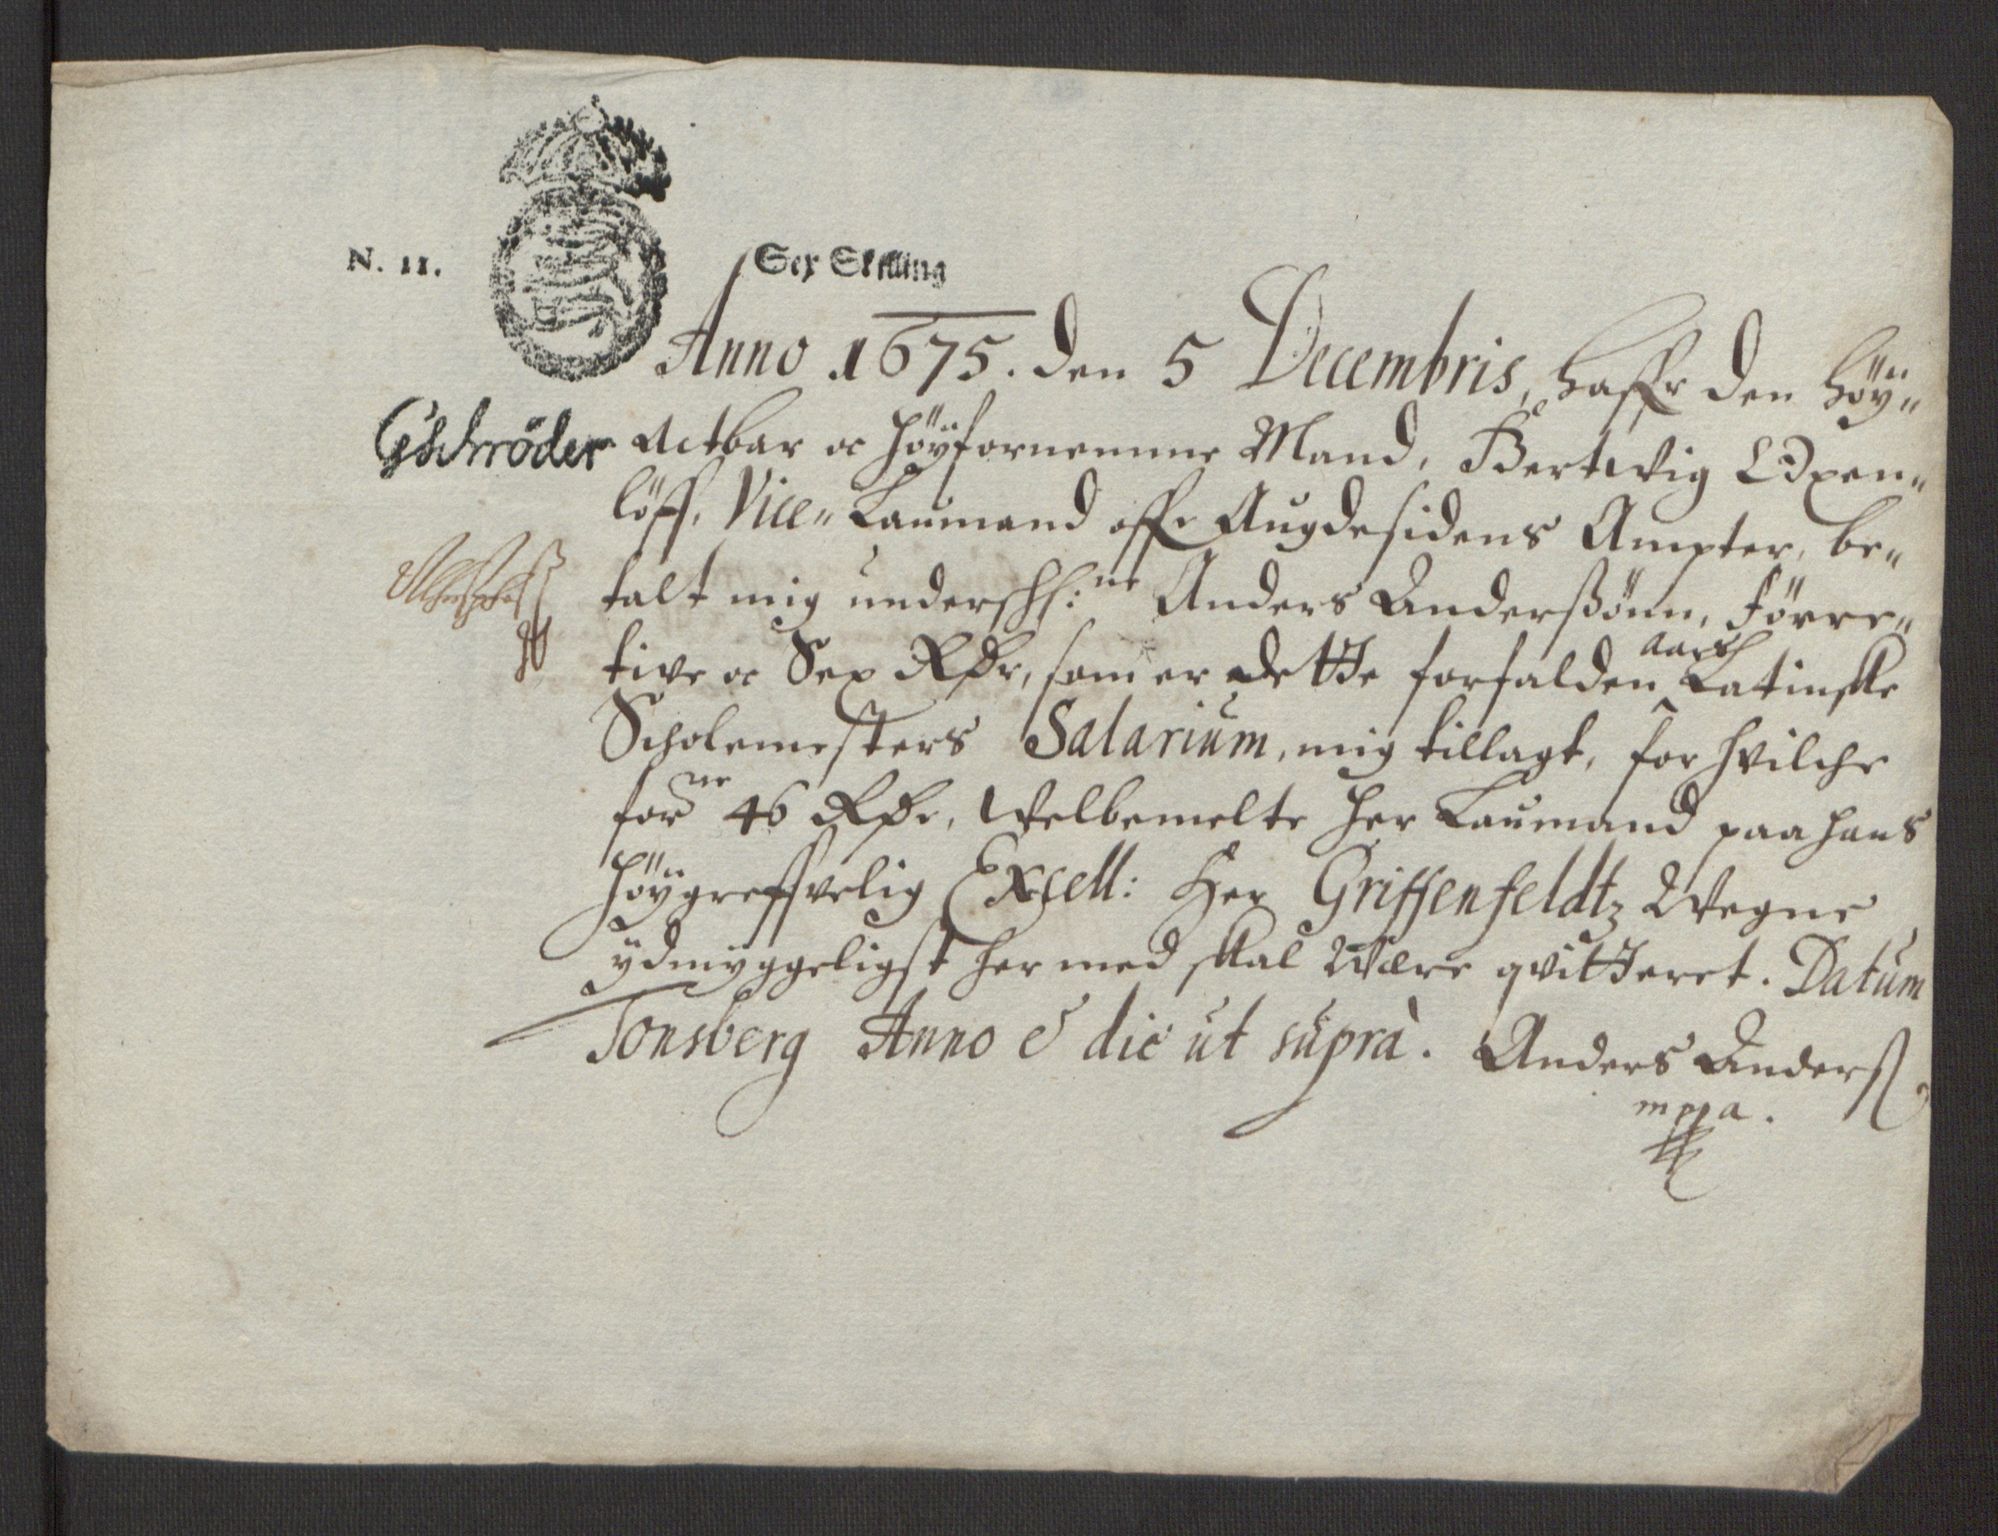 N. 11.
Sex Skilling
Anno 1675. den 5 Decembris, haffr den høy„
GSchröder
Actbar oc høyfornemme Mand, Bertwig Oxen„
löff, Vice„ Laumand offr Augdesidens Ampter, be„
talt mig underschf:ne Anders Anderßønn, førre„
tive oc Sex Rdr, som er dette forfalden Aars Latinske
Scholemesters Salarium, mig tillagt, for hvilche
forne 46 Rdr, Welbemelte her Laumand paa hans
høygreffvelig Excell: Her Griffenfeldtz Wegne
ydmyggeligst hermed skal Være qvitteret. Datum
Tonsberg Anno & die ut suprà. Anders Anderß
mppa.